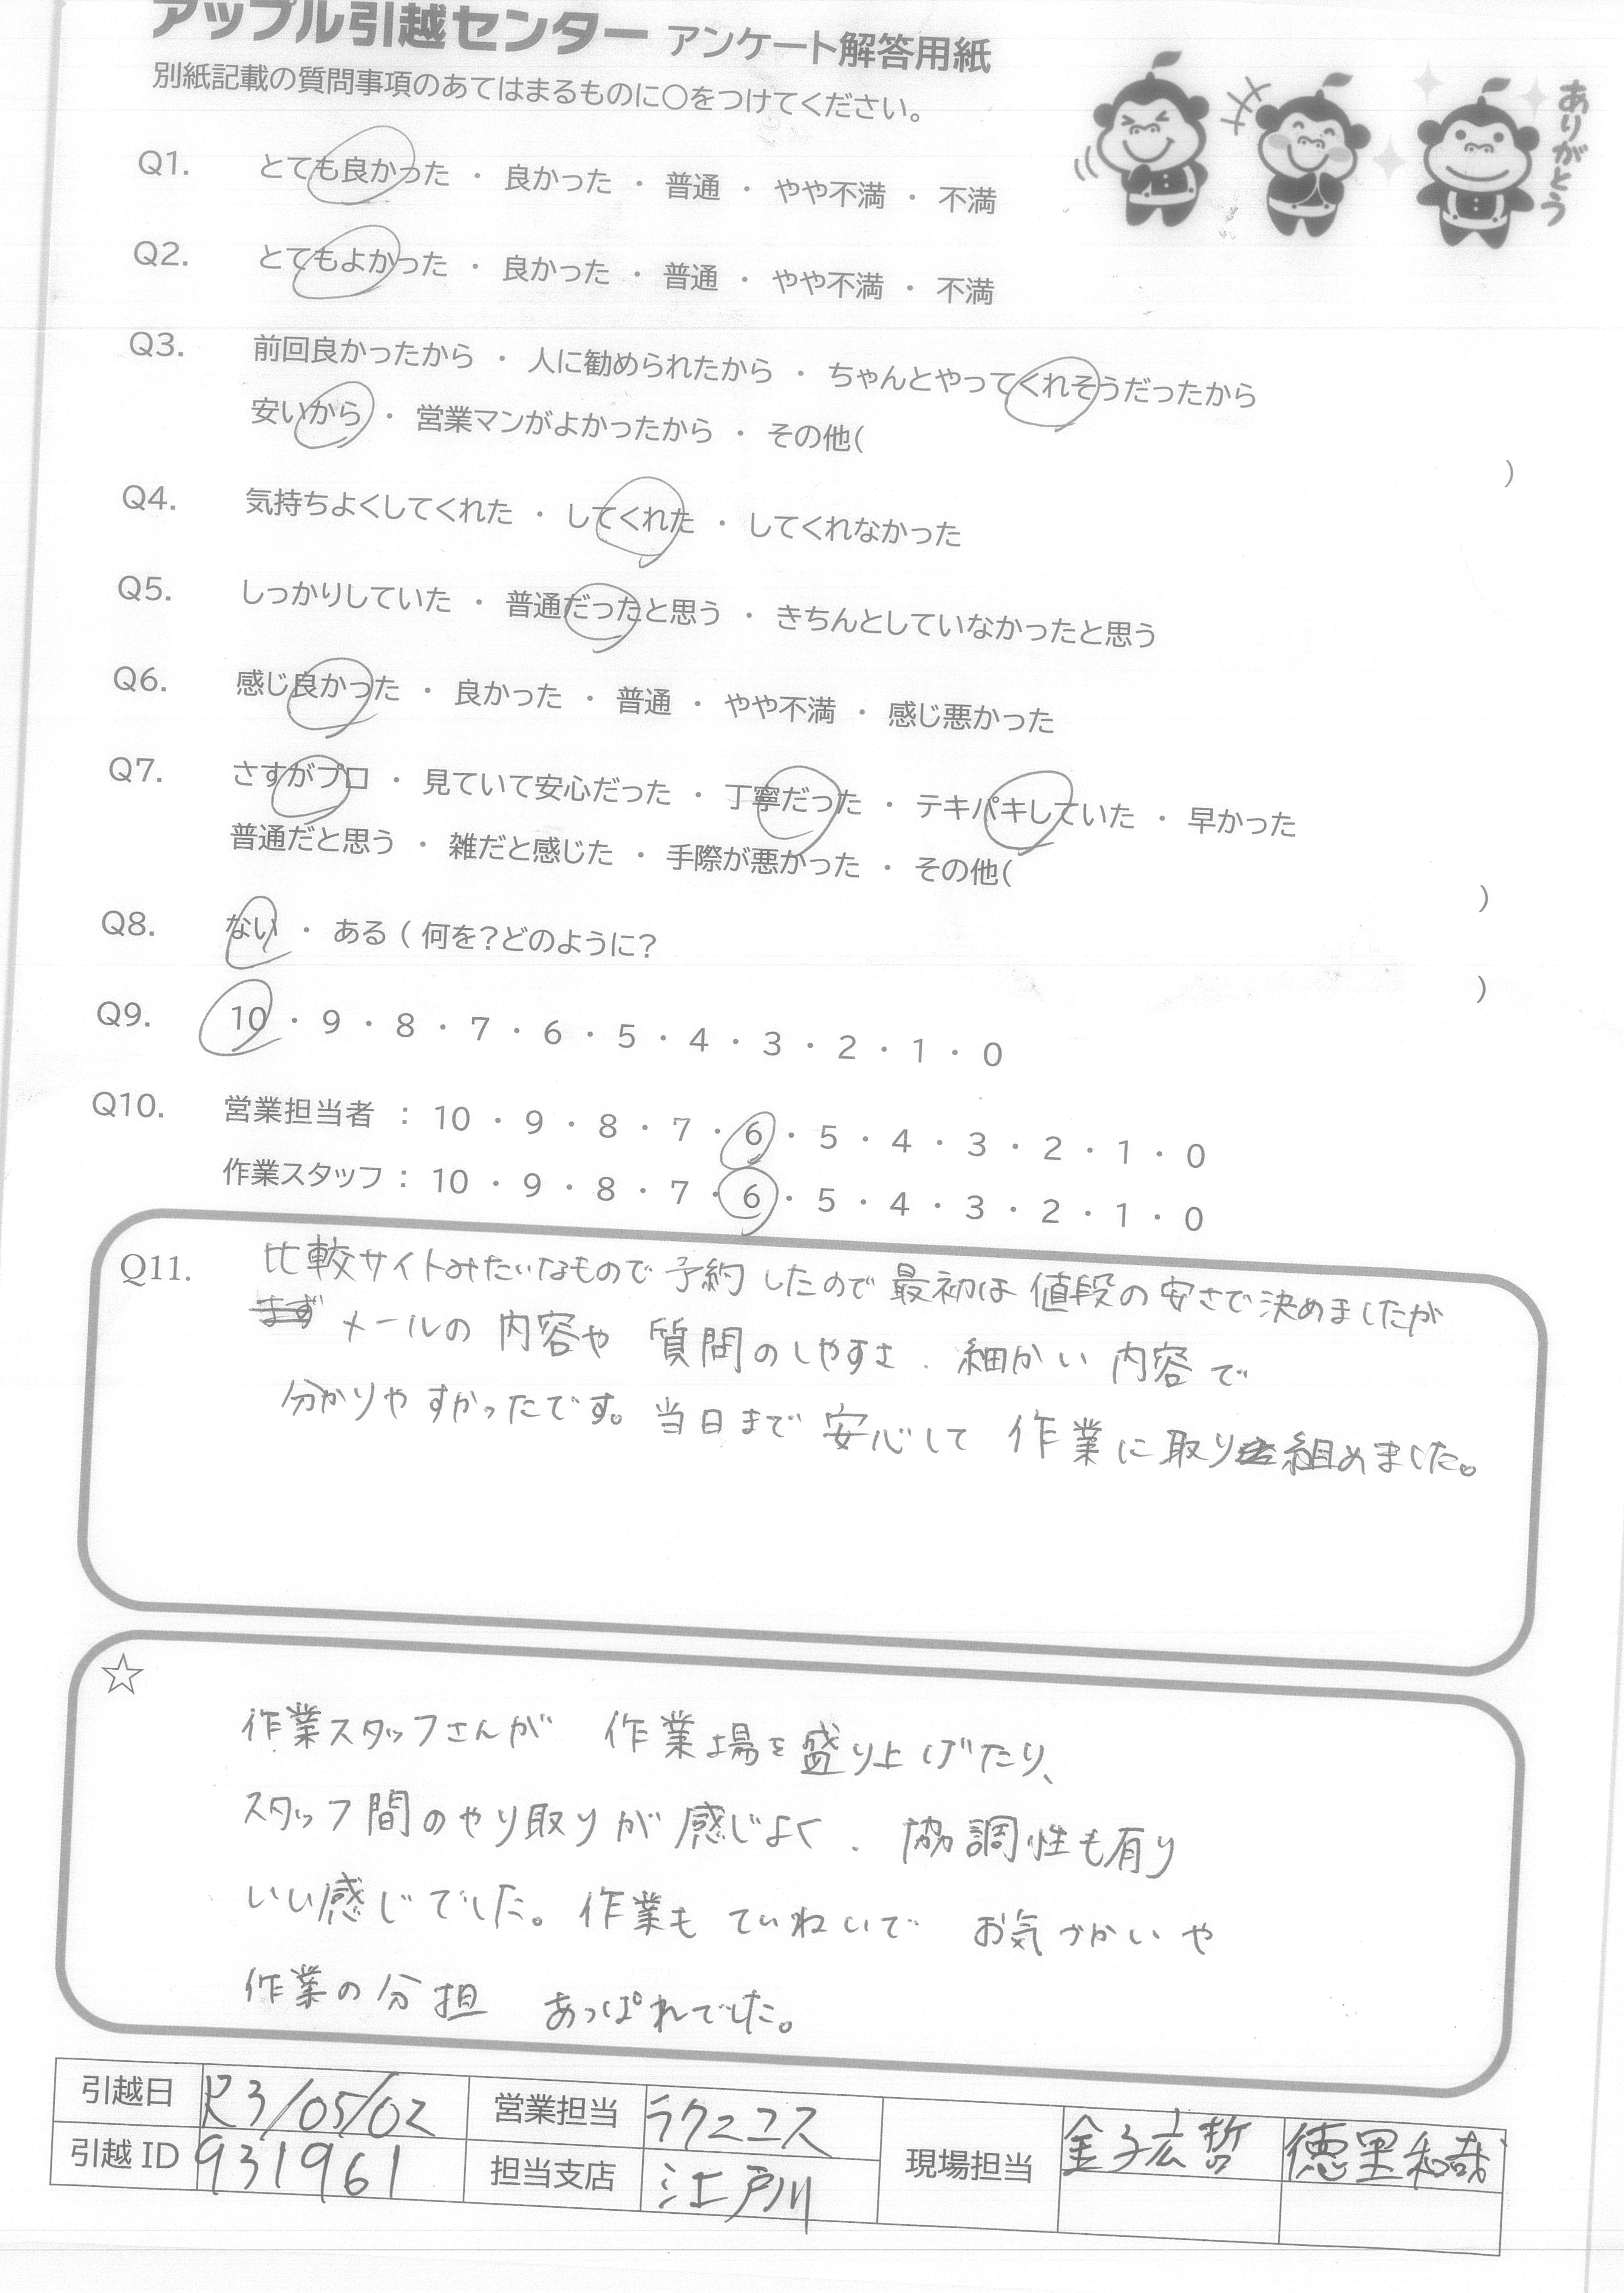 アップル引越センター アンケート解答用紙
別紙記載の質問事項のあてはまるものに〇をつけてください。
ありがとう
Q1. とても良かった ・ 良かった ・ 普通 ・ やや不満 ・ 不満
Q2. とてもよかった ・ 良かった ・ 普通 ・ やや不満 ・ 不満
Q3. 前回良かったから ・ 人に勧められたから ・ ちゃんとやってくれそうだったから
安いから ・ 営業マンがよかったから ・ その他( )
Q4. 気持ちよくしてくれた ・ してくれた ・ してくれなかった
Q5. しっかりしていた ・ 普通だったと思う ・ きちんとしていなかったと思う
Q6. 感じ良かった ・ 良かった ・ 普通 ・ やや不満 ・ 感じ悪かった
Q7. さすがプロ ・ 見ていて安心だった ・ 丁寧だった ・ テキパキしていた ・ 早かった
普通だと思う ・ 雑だと感じた ・ 手際が悪かった ・ その他( )
Q8. ない ・ ある ( 何を?どのように? )
Q9. 10 ・ 9 ・ 8 ・ 7 ・ 6 ・ 5 ・ 4 ・ 3 ・ 2 ・ 1 ・ 0
Q10. 営業担当者 : 10 ・ 9 ・ 8 ・ 7 ・ 6 ・ 5 ・ 4 ・ 3 ・ 2 ・ 1 ・ 0
作業スタッフ : 10 ・ 9 ・ 8 ・ 7 ・ 6 ・ 5 ・ 4 ・ 3 ・ 2 ・ 1 ・ 0
Q11. 比較サイトみたいなもので予約したので最初は値段の安さで決めましたが
メールの内容や質問のしやすさ、細かい内容で
分かりやすかったです。当日まで安心して作業に取り組めました。
☆
作業スタッフさんが 作業場を盛り上げたり、
スタッフ間のやり取りが感じよく、協調性も有り
いい感じでした。作業もていねいで お気づかいや
作業の分担 あっぱれでした。
引越日 R3/05/02 営業担当 ラクニコス 現場担当 金子宏哲 徳里和哉
引越ID 931961 担当支店 江戸川